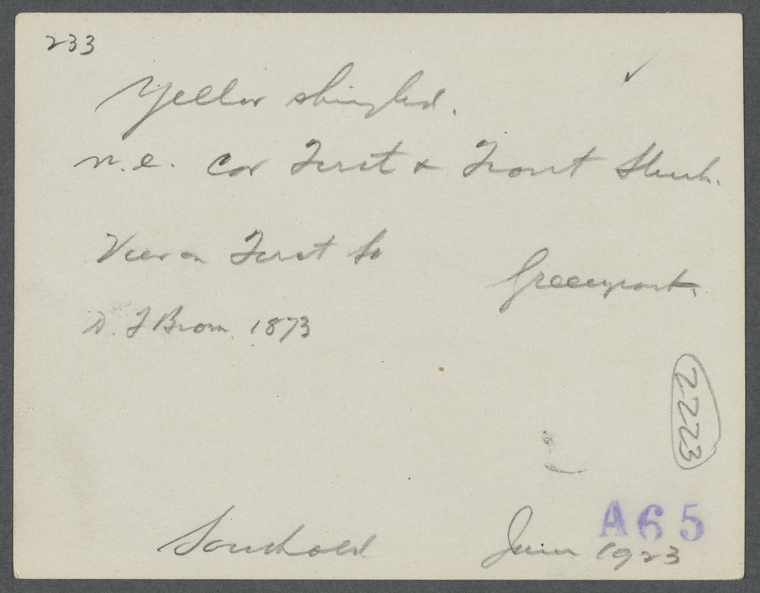 233
Yellow shingled.
n.e. cor First & Front Streets.
View on First St
Greenport.
D. F Brown 1873
2223
A65
Southold June 1923